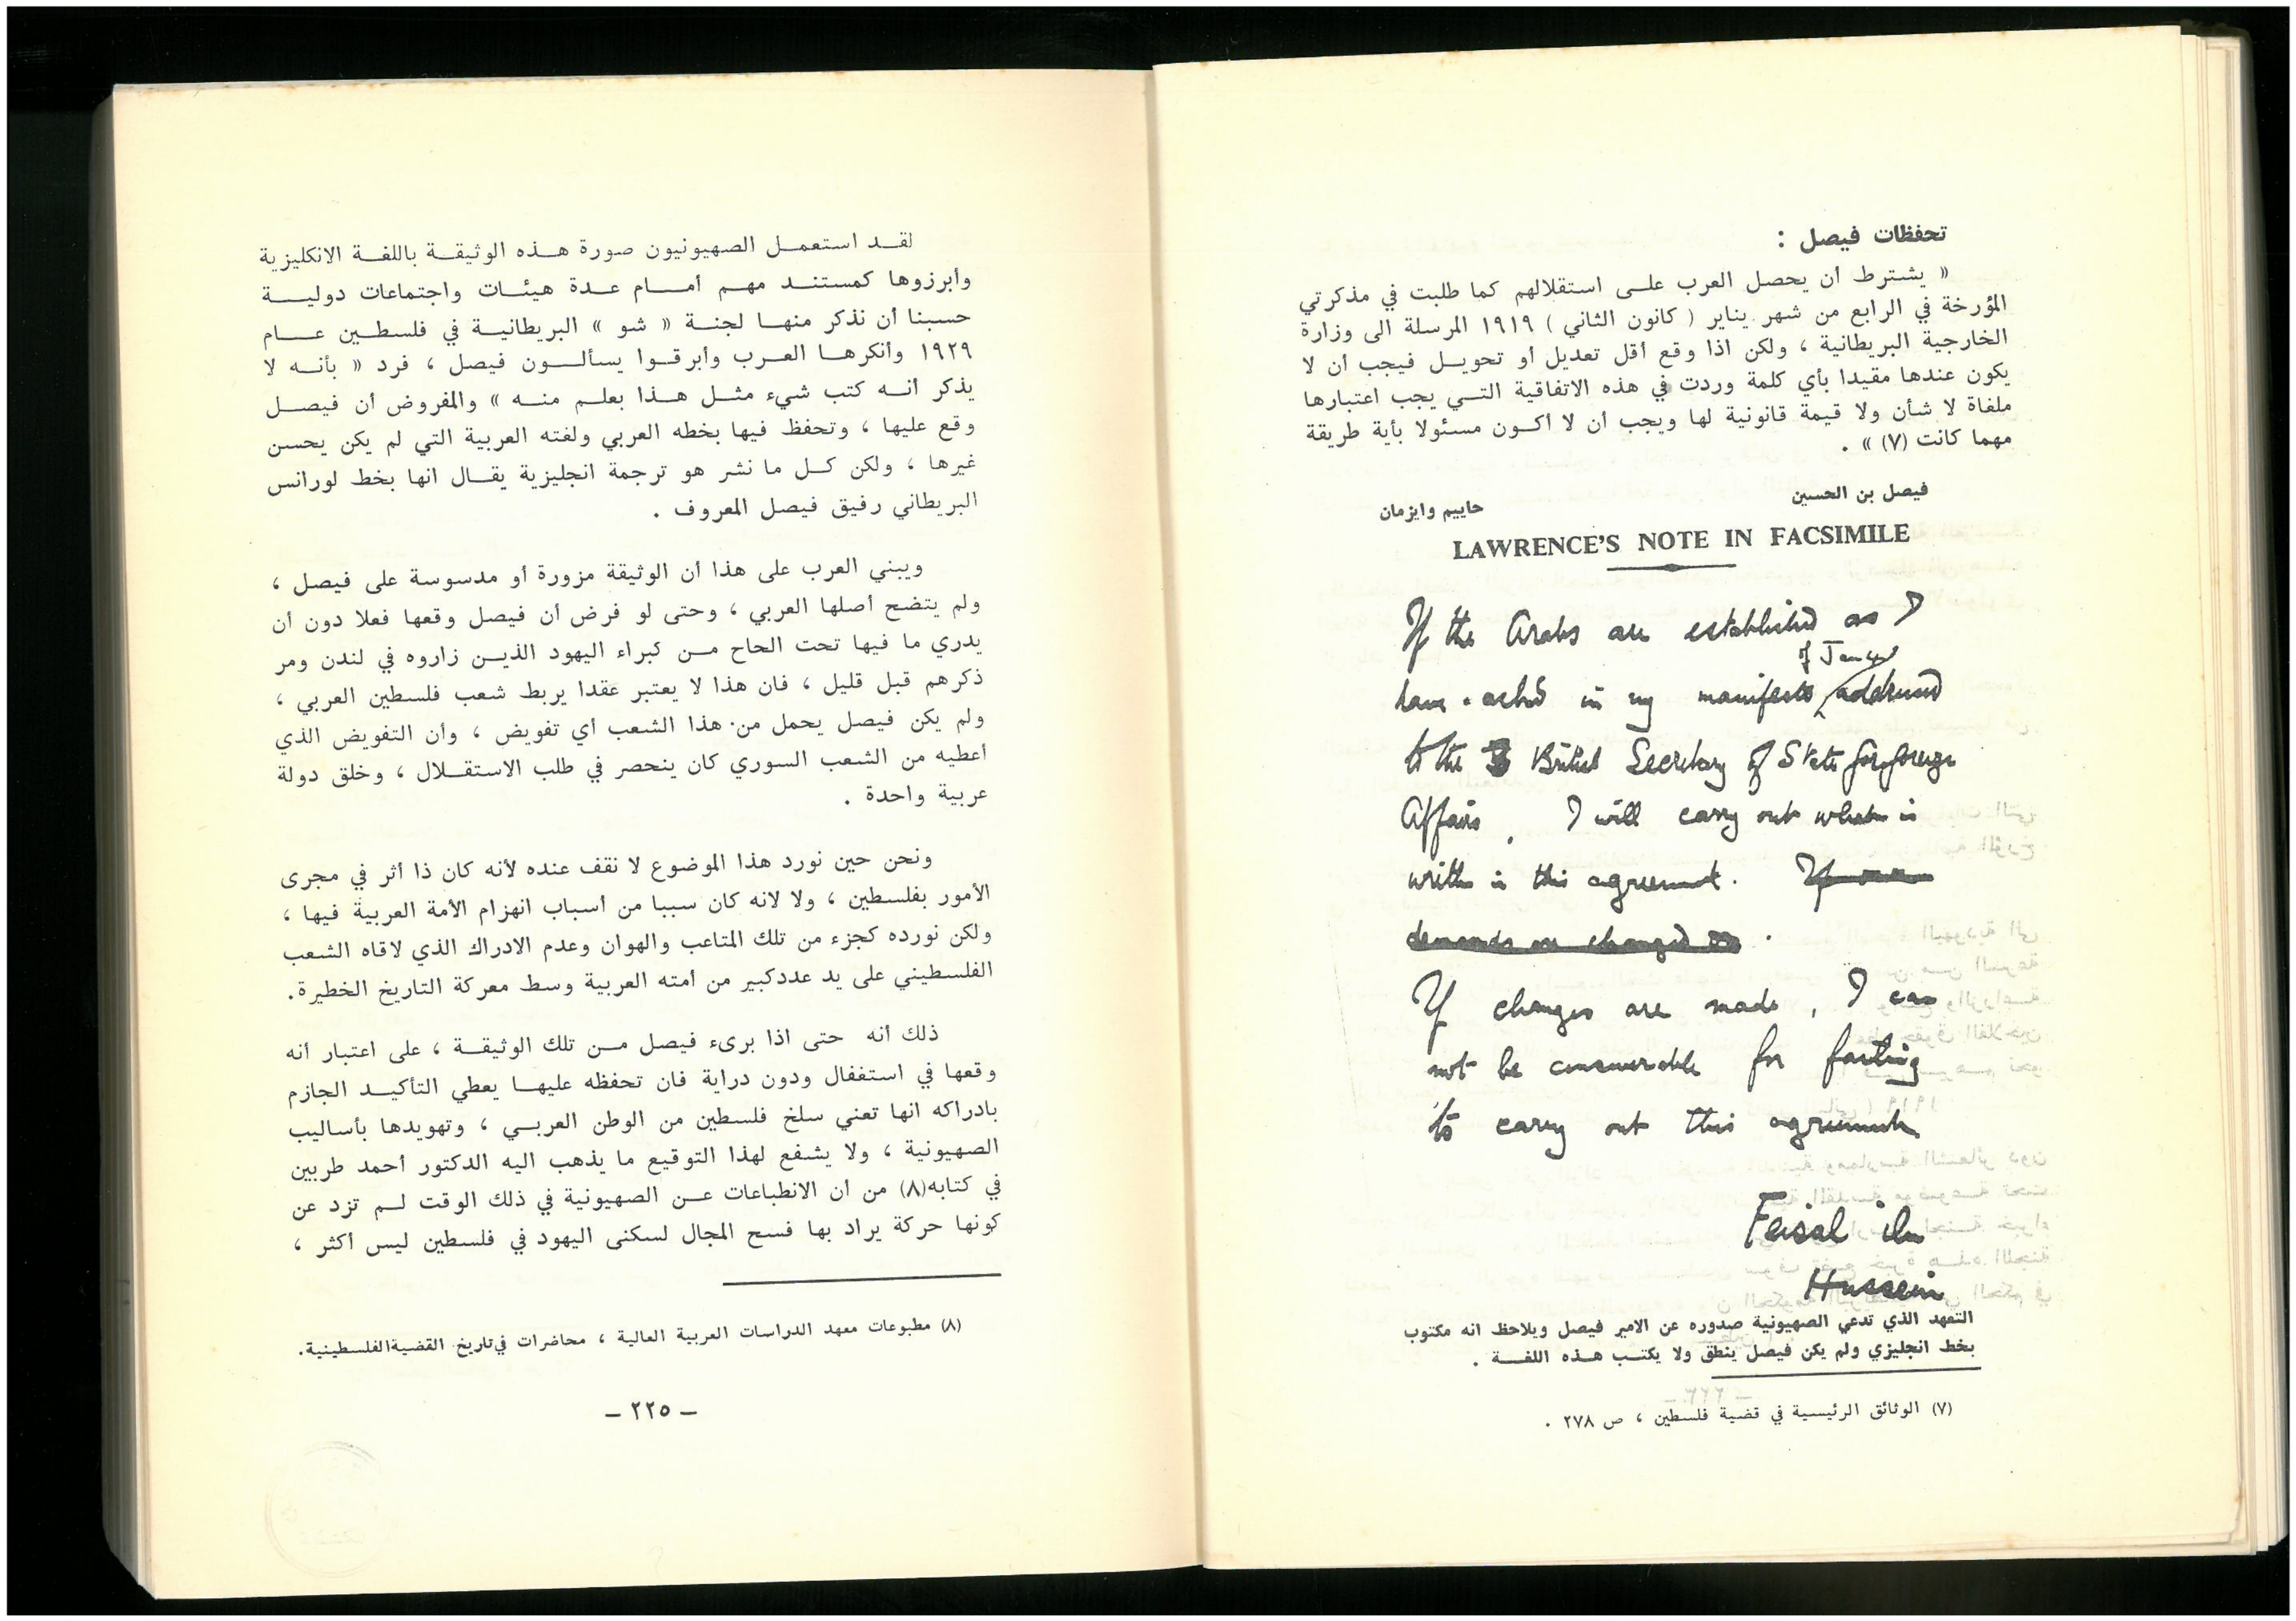 تحفظات فيصل :
« يشترط أن يحصل العرب علـى استقلالهم كما طلبت في مذكرتي
المؤرخة في الرابع من شهر يناير ( كانون الثاني ) ١٩١٩ المرسلة الى وزارة
الخارجية البريطانية ، ولكن اذا وقع أقل تعديل أو تحويـل فيجب أن لا
يكون عندها مقيدا بأي كلمة وردت في هذه الاتفاقية التـي يجب اعتبارها
ملغاة لا شأن ولا قيمة قانونية لها ويجب أن لا أكـون مسئولا بأية طريقة
مهما كانت (٧) » .
فيصل بن الحسين
حاييم وايزمان
LAWRENCE'S NOTE IN FACSIMILE
If the Arabs are established as I
of Jan 4
have asked in my manifesto addressed
to the British Secretary of State for foreign
Affairs, I will carry out what is
written in this agreement. If our
demands are changed
If changes are made, I can
not be answerable for failing
to carry out this agreement
Feisal ibn
Hussein
التعهد الذي تدعي الصهيونية صدوره عن الامير فيصل ويلاحظ انه مكتوب
بخط انجليزي ولم يكن فيصل ينطق ولا يكتـب هـذه اللغـة .
(٧) الوثائق الرئيسية في قضية فلسطين ، ص ٢٧٨ .
لقـد استعمـل الصهيونيون صورة هـذه الوثيقـة باللغـة الانكليزية
وأبرزوها كمستنـد مهـم أمـام عـدة هيئـات واجتماعات دوليـة
حسبنا أن نذكر منهـا لجنـة « شو » البريطانيـة في فلسطـين عـام
١٩٢٩ وأنكرهـا العـرب وأبرقـوا يسألـون فيصل ، فرد « بأنـه لا
يذكر انـه كتب شيء مثـل هـذا بعلـم منـه » والمفروض أن فيصـل
وقع عليها ، وتحفظ فيها بخطه العربي ولغته العربية التي لم يكن يحسن
غيرها ، ولكن كـل ما نشر هو ترجمة انجليزية يقـال انها بخط لورانس
البريطاني رفيق فيصل المعروف .
ويبني العرب على هذا أن الوثيقة مزورة أو مدسوسة على فيصل ،
ولم يتضح أصلها العربي ، وحتى لو فرض أن فيصل وقعها فعلا دون أن
يدري ما فيها تحت الحاح مـن كبراء اليهود الذيـن زاروه في لندن ومر
ذكرهم قبل قليل ، فان هذا لا يعتبر عقدا يربط شعب فلسطين العربي ،
ولم يكن فيصل يحمل من هذا الشعب أي تفويض ، وأن التفويض الذي
أعطيه من الشعب السوري كان ينحصر في طلب الاستقـلال ، وخلق دولة
عربية واحدة .
ونحن حين نورد هذا الموضوع لا نقف عنده لأنه كان ذا أثر في مجرى
الأمور بفلسطين ، ولا لانه كان سببا من أسباب انهزام الأمة العربية فيها ،
ولكن نورده كجزء من تلك المتاعب والهوان وعدم الادراك الذي لاقاه الشعب
الفلسطيني على يد عددكبير من أمته العربية وسط معركة التاريخ الخطيرة.
ذلك أنه حتى اذا برىء فيصل مـن تلك الوثيقـة ، على اعتبار أنه
وقعها في استغفال ودون دراية فان تحفظه عليهـا يعطي التأكيـد الجازم
بادراكه انها تعني سلخ فلسطين من الوطن العربـي ، وتهويدها بأساليب
الصهيونية ، ولا يشفع لهذا التوقيع ما يذهب اليه الدكتور أحمد طربين
في كتابه(٨) من أن الانطباعات عـن الصهيونية في ذلك الوقت لـم تزد عن
كونها حركة يراد بها فسح المجال لسكنى اليهود في فلسطين ليس أكثر ،
(٨) مطبوعات معهد الدراسات العربية العالية ، محاضرات في تاريخ القضيةالفلسطينية.
– ٢٢٥ –